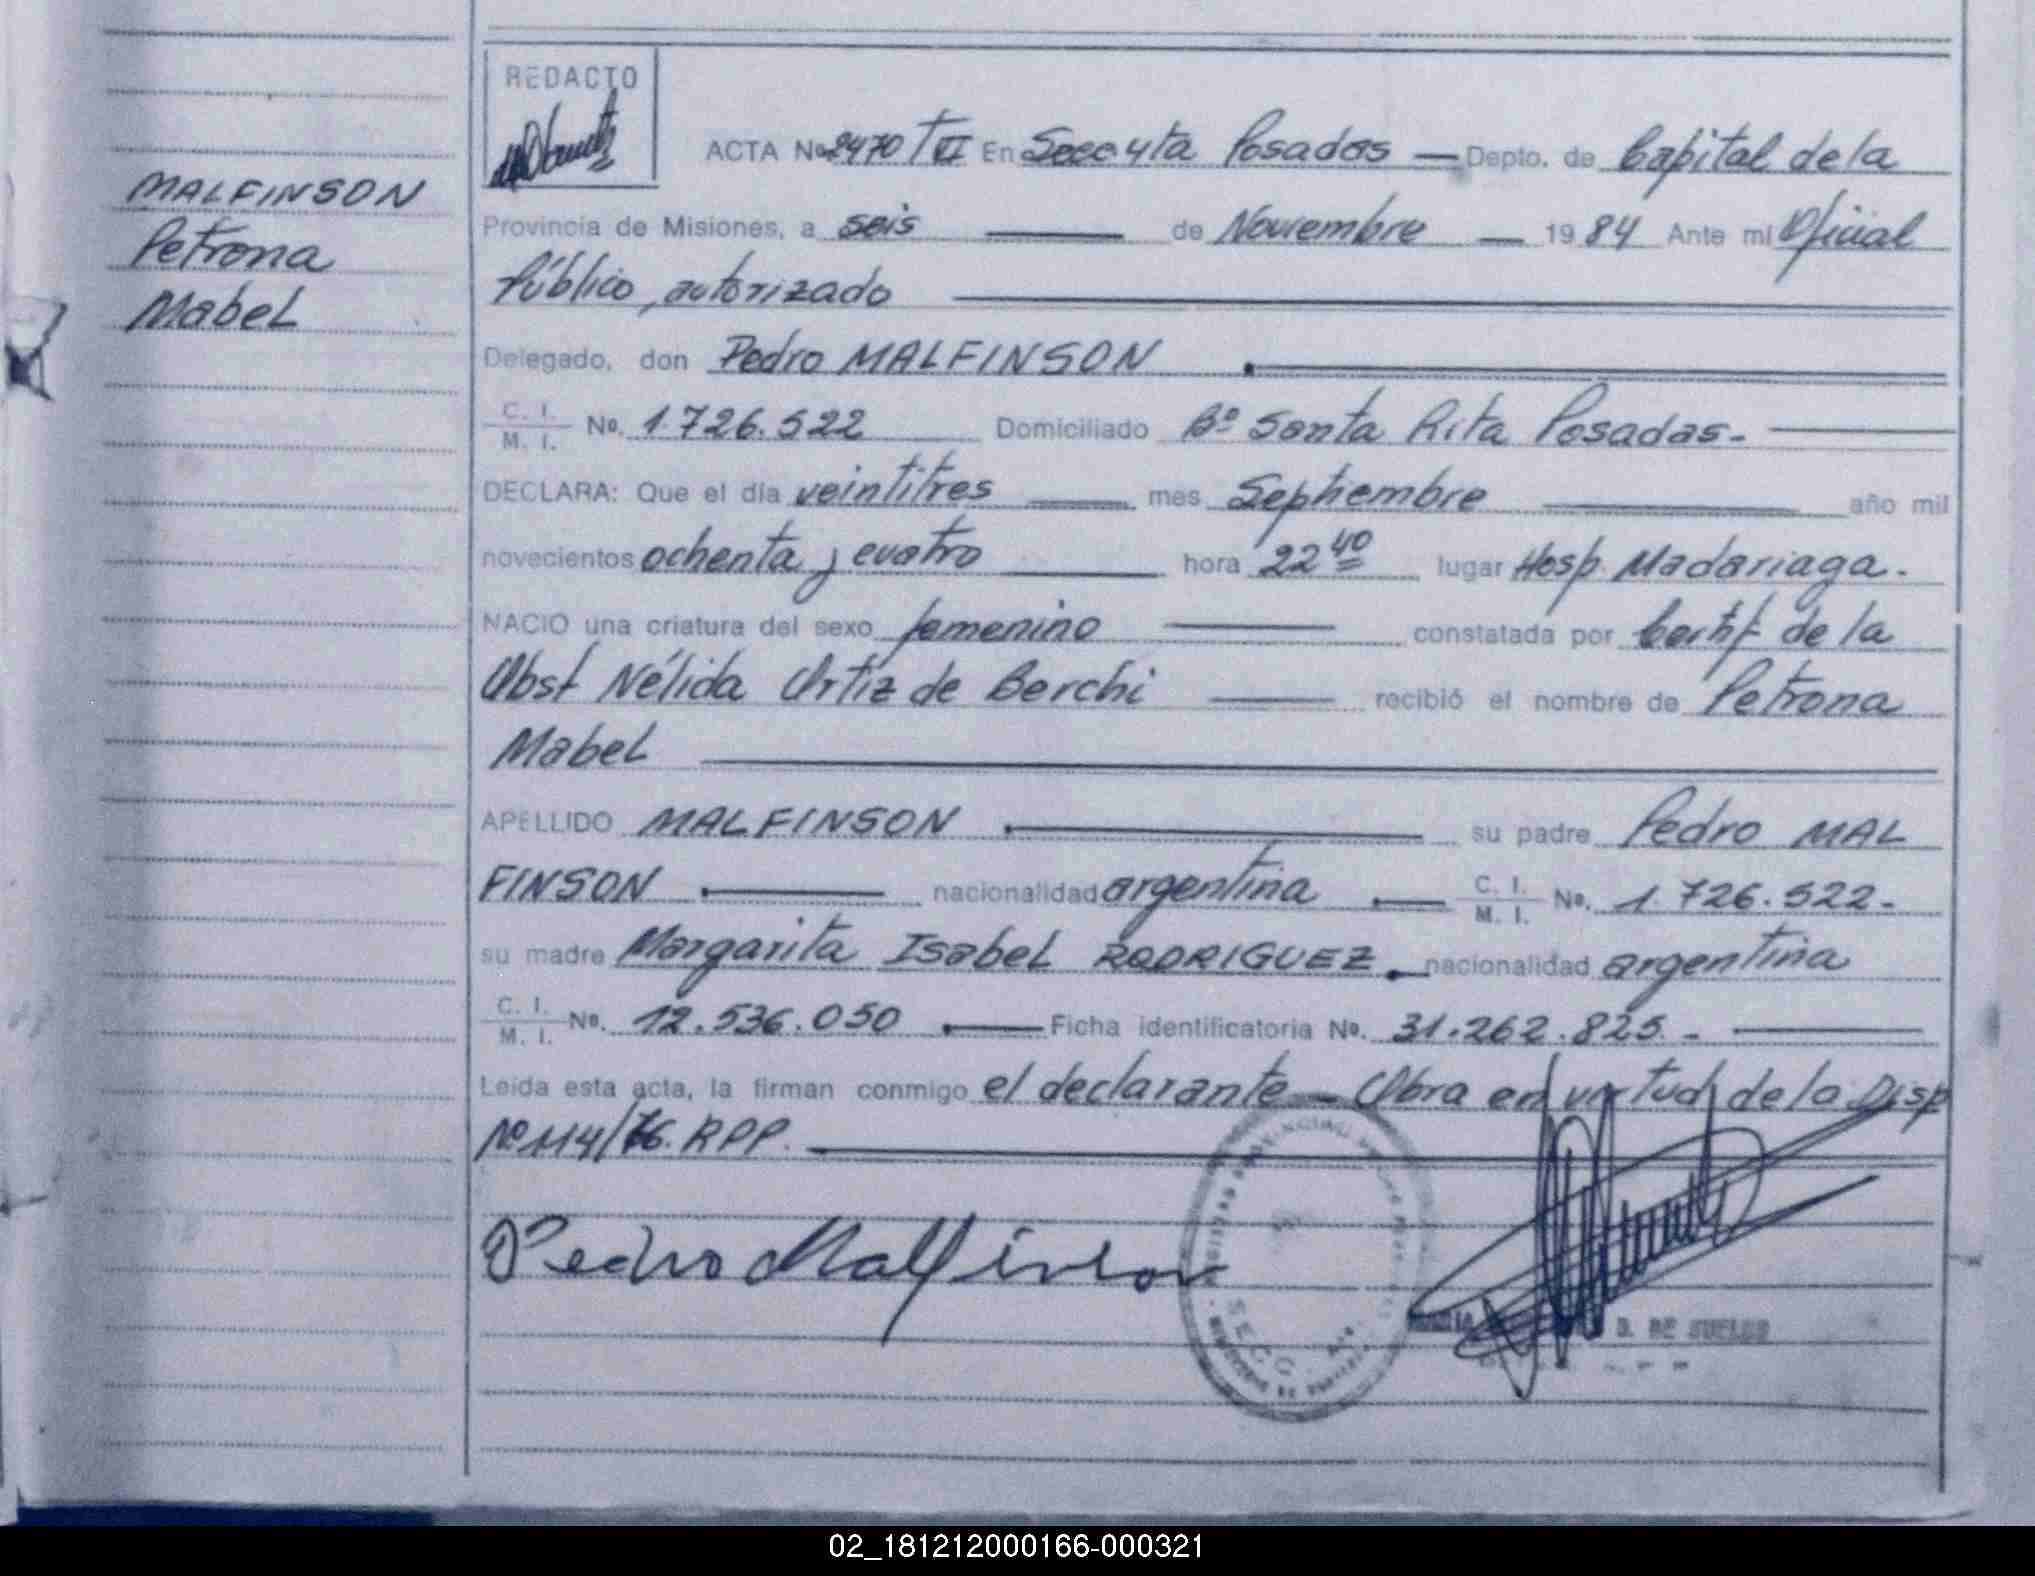 REDACTO
ACTA No 2470 T VI En Secc 4ta Posadas — Depto. de Capital de la
MALFINSON
Petrona
Mabel
Provincia de Misiones, a seis — de Noviembre — 1984 Ante mi Oficial
Público, autorizado
Delegado, don Pedro MALFINSON .
C. I. / M. I. No. 1.726.522 Domiciliado Bº Santa Rita Posadas.-
DECLARA: Que el día veintitres — mes Septiembre — año mil
novecientos ochenta y cuatro — hora 22 40 lugar Hosp. Madariaga.
NACIO una criatura del sexo femenino — constatada por Certif. de la
Obst Nélida Ortiz de Berchi — recibió el nombre de Petrona
Mabel
APELLIDO MALFINSON . — su padre Pedro MAL
FINSON . — nacionalidad argentina . — C. I. / M. I. No. 1.726.522.-
su madre Margarita Isabel RODRIGUEZ . nacionalidad argentina
C. I. / M. I. No. 12.536.050 . — Ficha identificatoria No. 31.262.825.-
Leída esta acta, la firman conmigo el declarante - Obra en virtud de la Disp
Nº 114/76. RPP.
Pedro Malfinson
SECC.
D. DE SUELDO
02_181212000166-000321